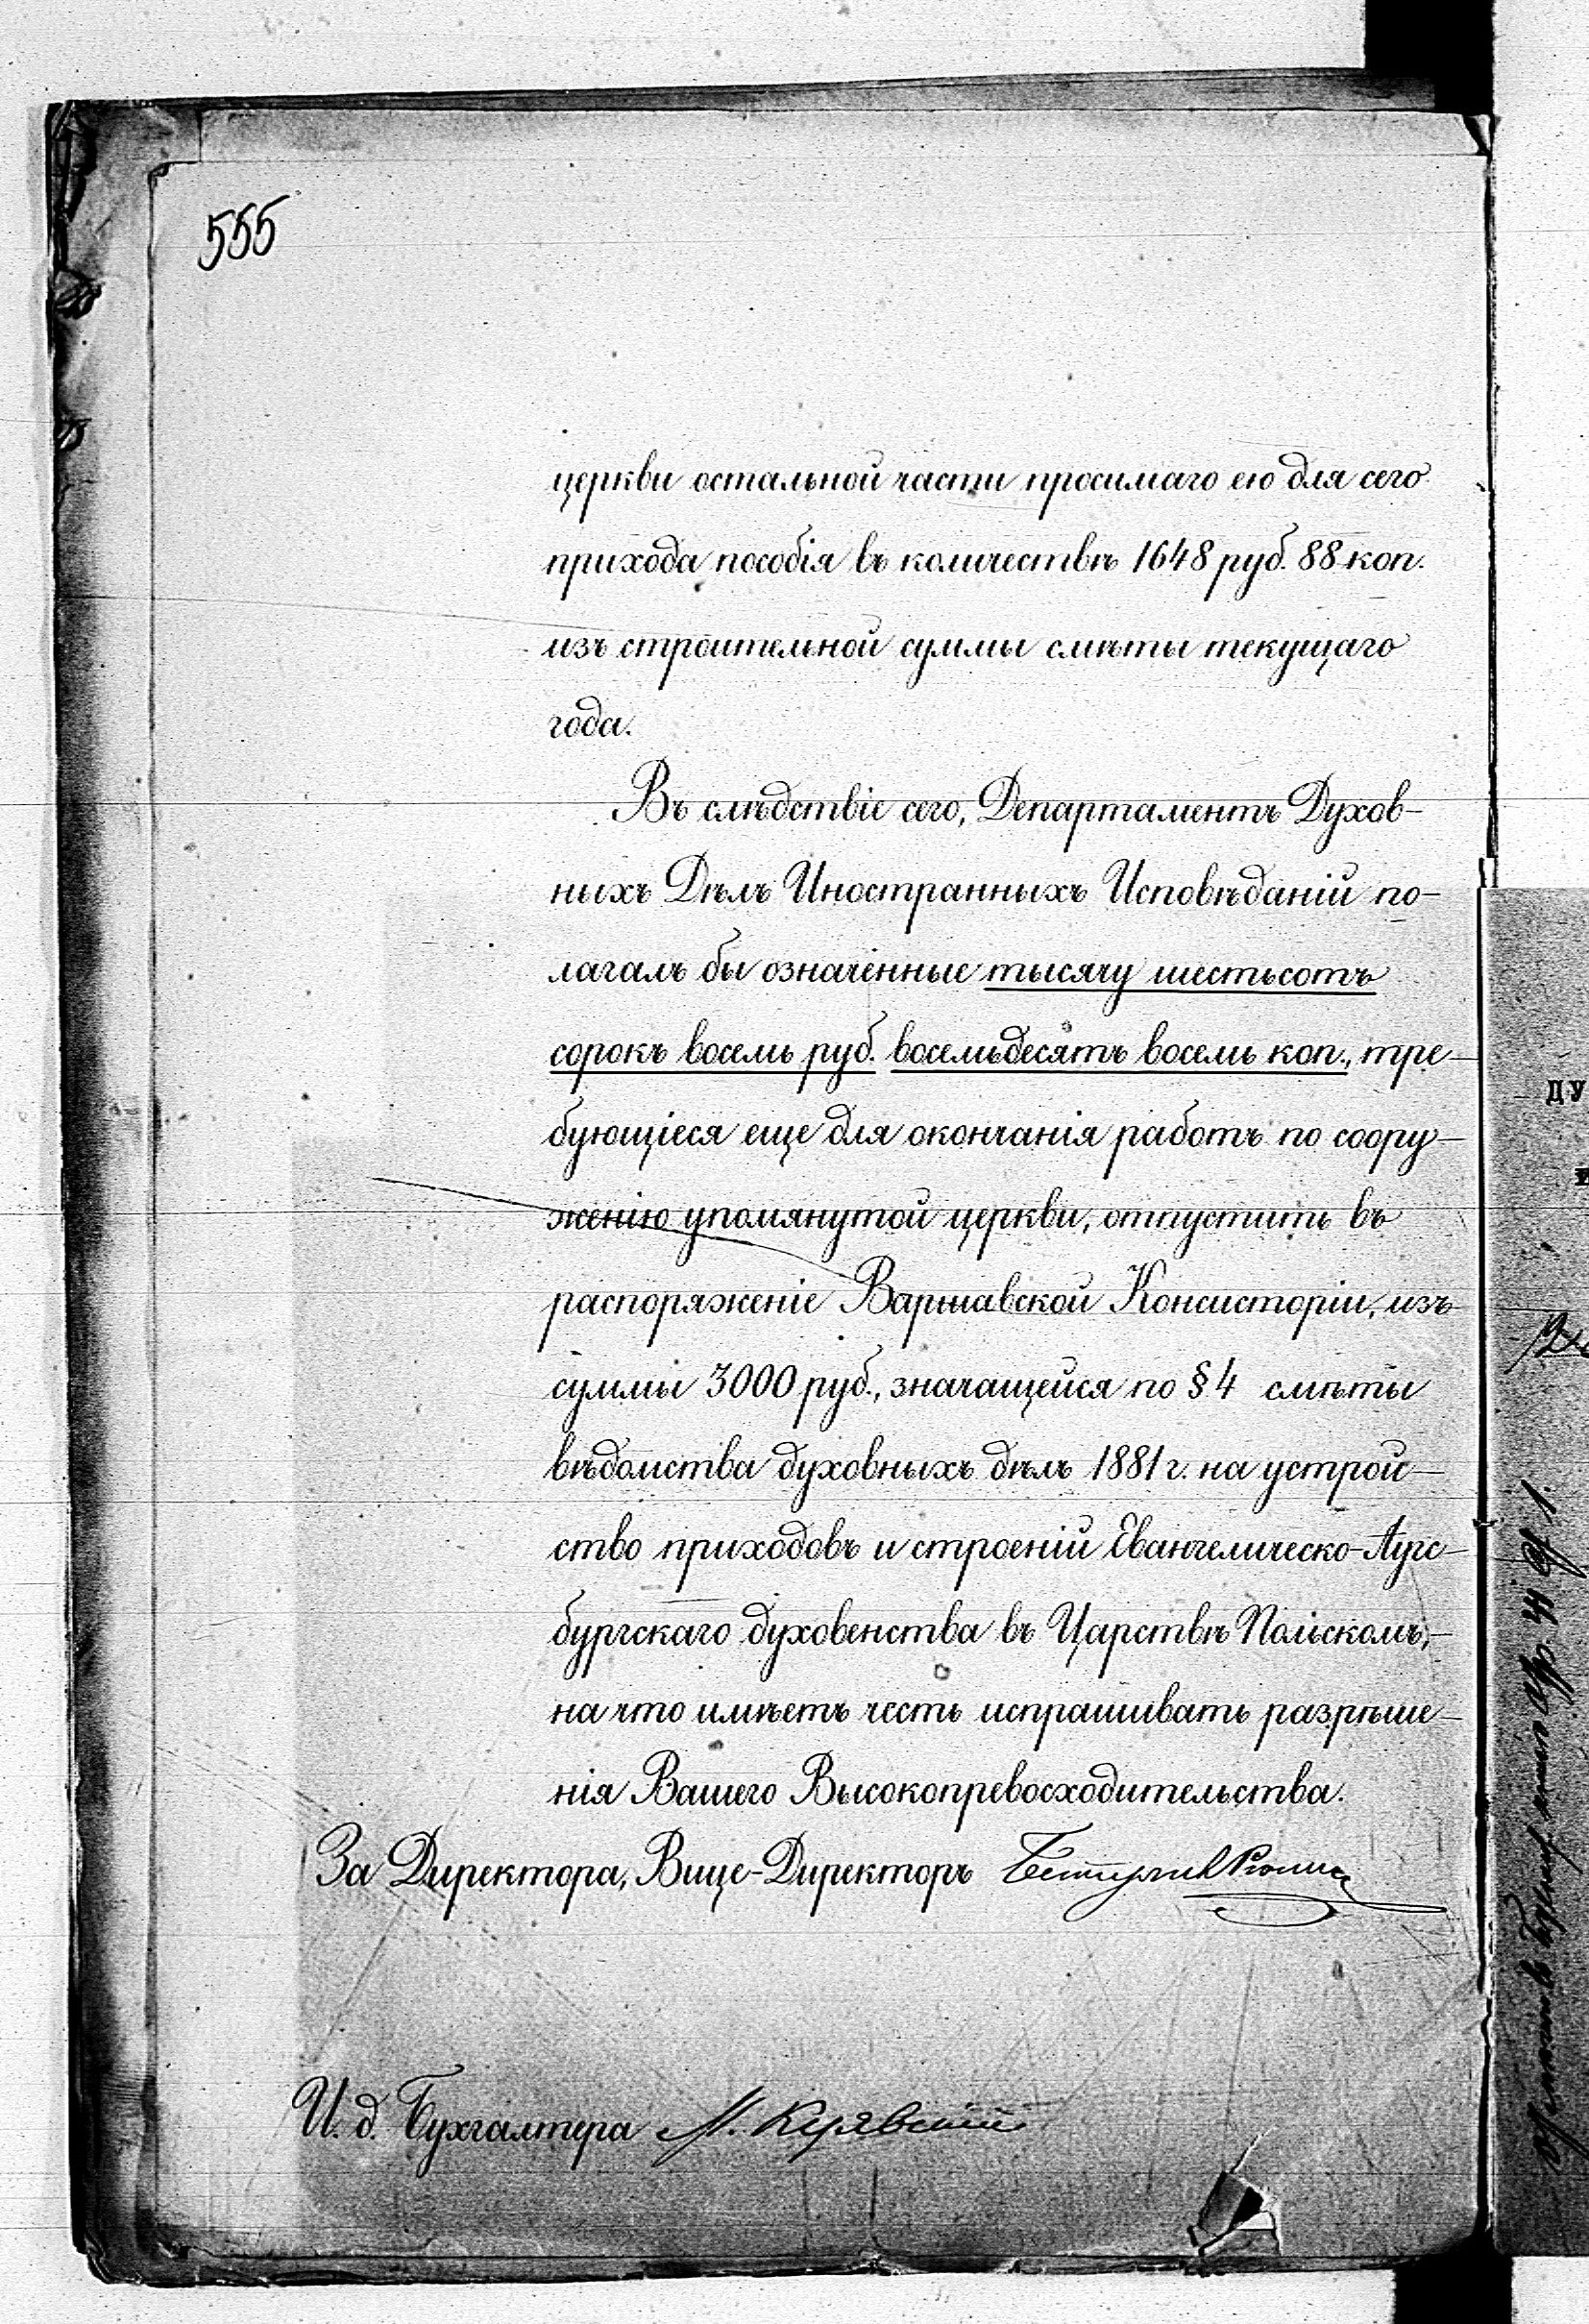 555
церкви остальной части просимаго ею для сего
прихода пособія въ количествѣ 1648 руб. 88 коп.
изъ строительной суммы смѣты текущаго
года.
Въ слѣдствіе сего, Департаментъ Духов-
ныхъ Дѣлъ Иностранныхъ Исповѣданій по-
лагалъ бы означенные тысячу шестьсотъ
сорокъ восемь руб. восемьдесятъ восемь коп., тре-
бующіеся еще для окончанія работъ по соору-
женію упомянутой церкви, отпустить въ
распоряженіе Варшавской Консисторіи, изъ
суммы 3000 руб., значащейся по § 4 смѣты
вѣдомства духовныхъ дѣлъ 1881 г. на устрой-
ство приходовъ и строеній Евангелическо-Аугс-
бургскаго духовенства въ Царствѣ Польскомъ,-
на что имѣетъ честь испрашивать разрѣше-
нія Вашего Высокопревосходительства.
За Директора, Вице-Директоръ
И. д. Бухгалтера М. Куявскій
ДУ